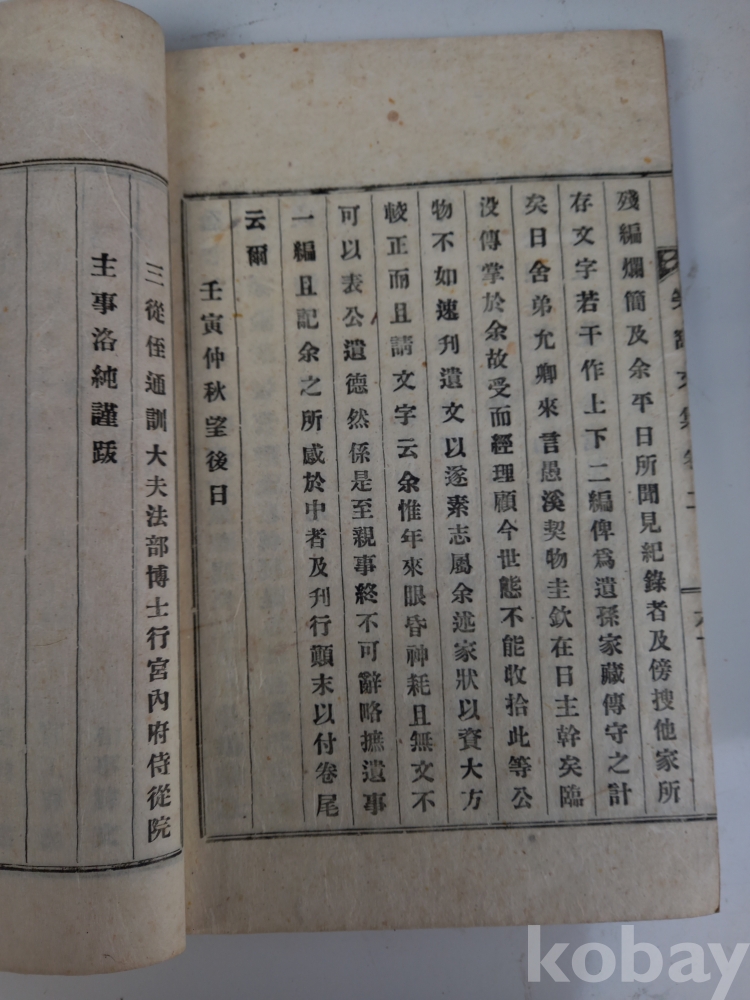 殘編爛簡及余平日所聞見紀錄者及傍搜他家所
存文字若干作上下二編俾爲遺孫家藏傳守之計
矣日舍弟允卿來言愚溪契物圭欽在日主幹矣臨
没傳掌於余故受而經理顧今世態不能收拾此等公
物不如速刊遺文以遂素志屬余述家狀以資大方
較正而且請文字云余惟年來眼昏神耗且無文不
可以表公遺德然係是至親事終不可辭略摭遺事
一編且記余之所感於中者及刊行顚末以付卷尾
云爾
壬寅仲秋望後日
三從侄通訓大夫法部博士行宮內府侍從院
主事洛純謹跋
kobay